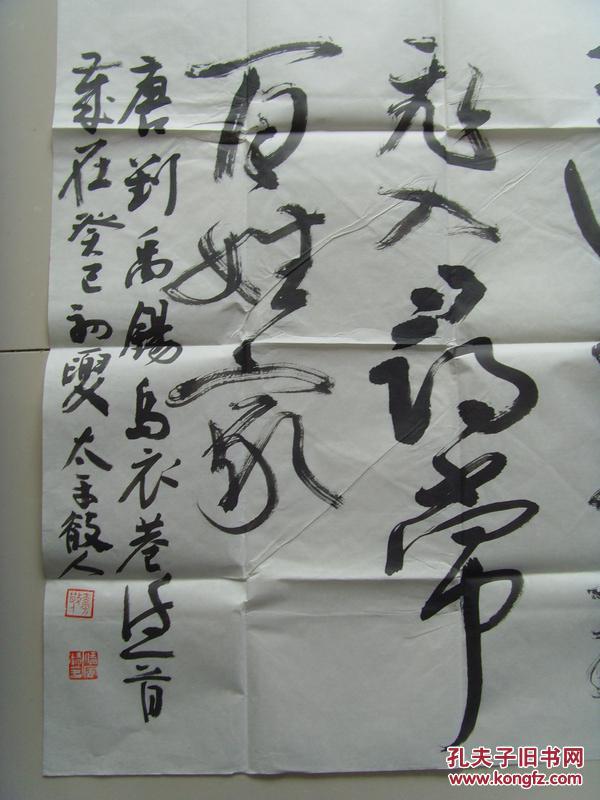 飛入尋常
百姓家
唐劉禹錫烏衣巷詩一首
歲在癸巳初夏太平散人
孔夫子旧书网
www.kongfz.com